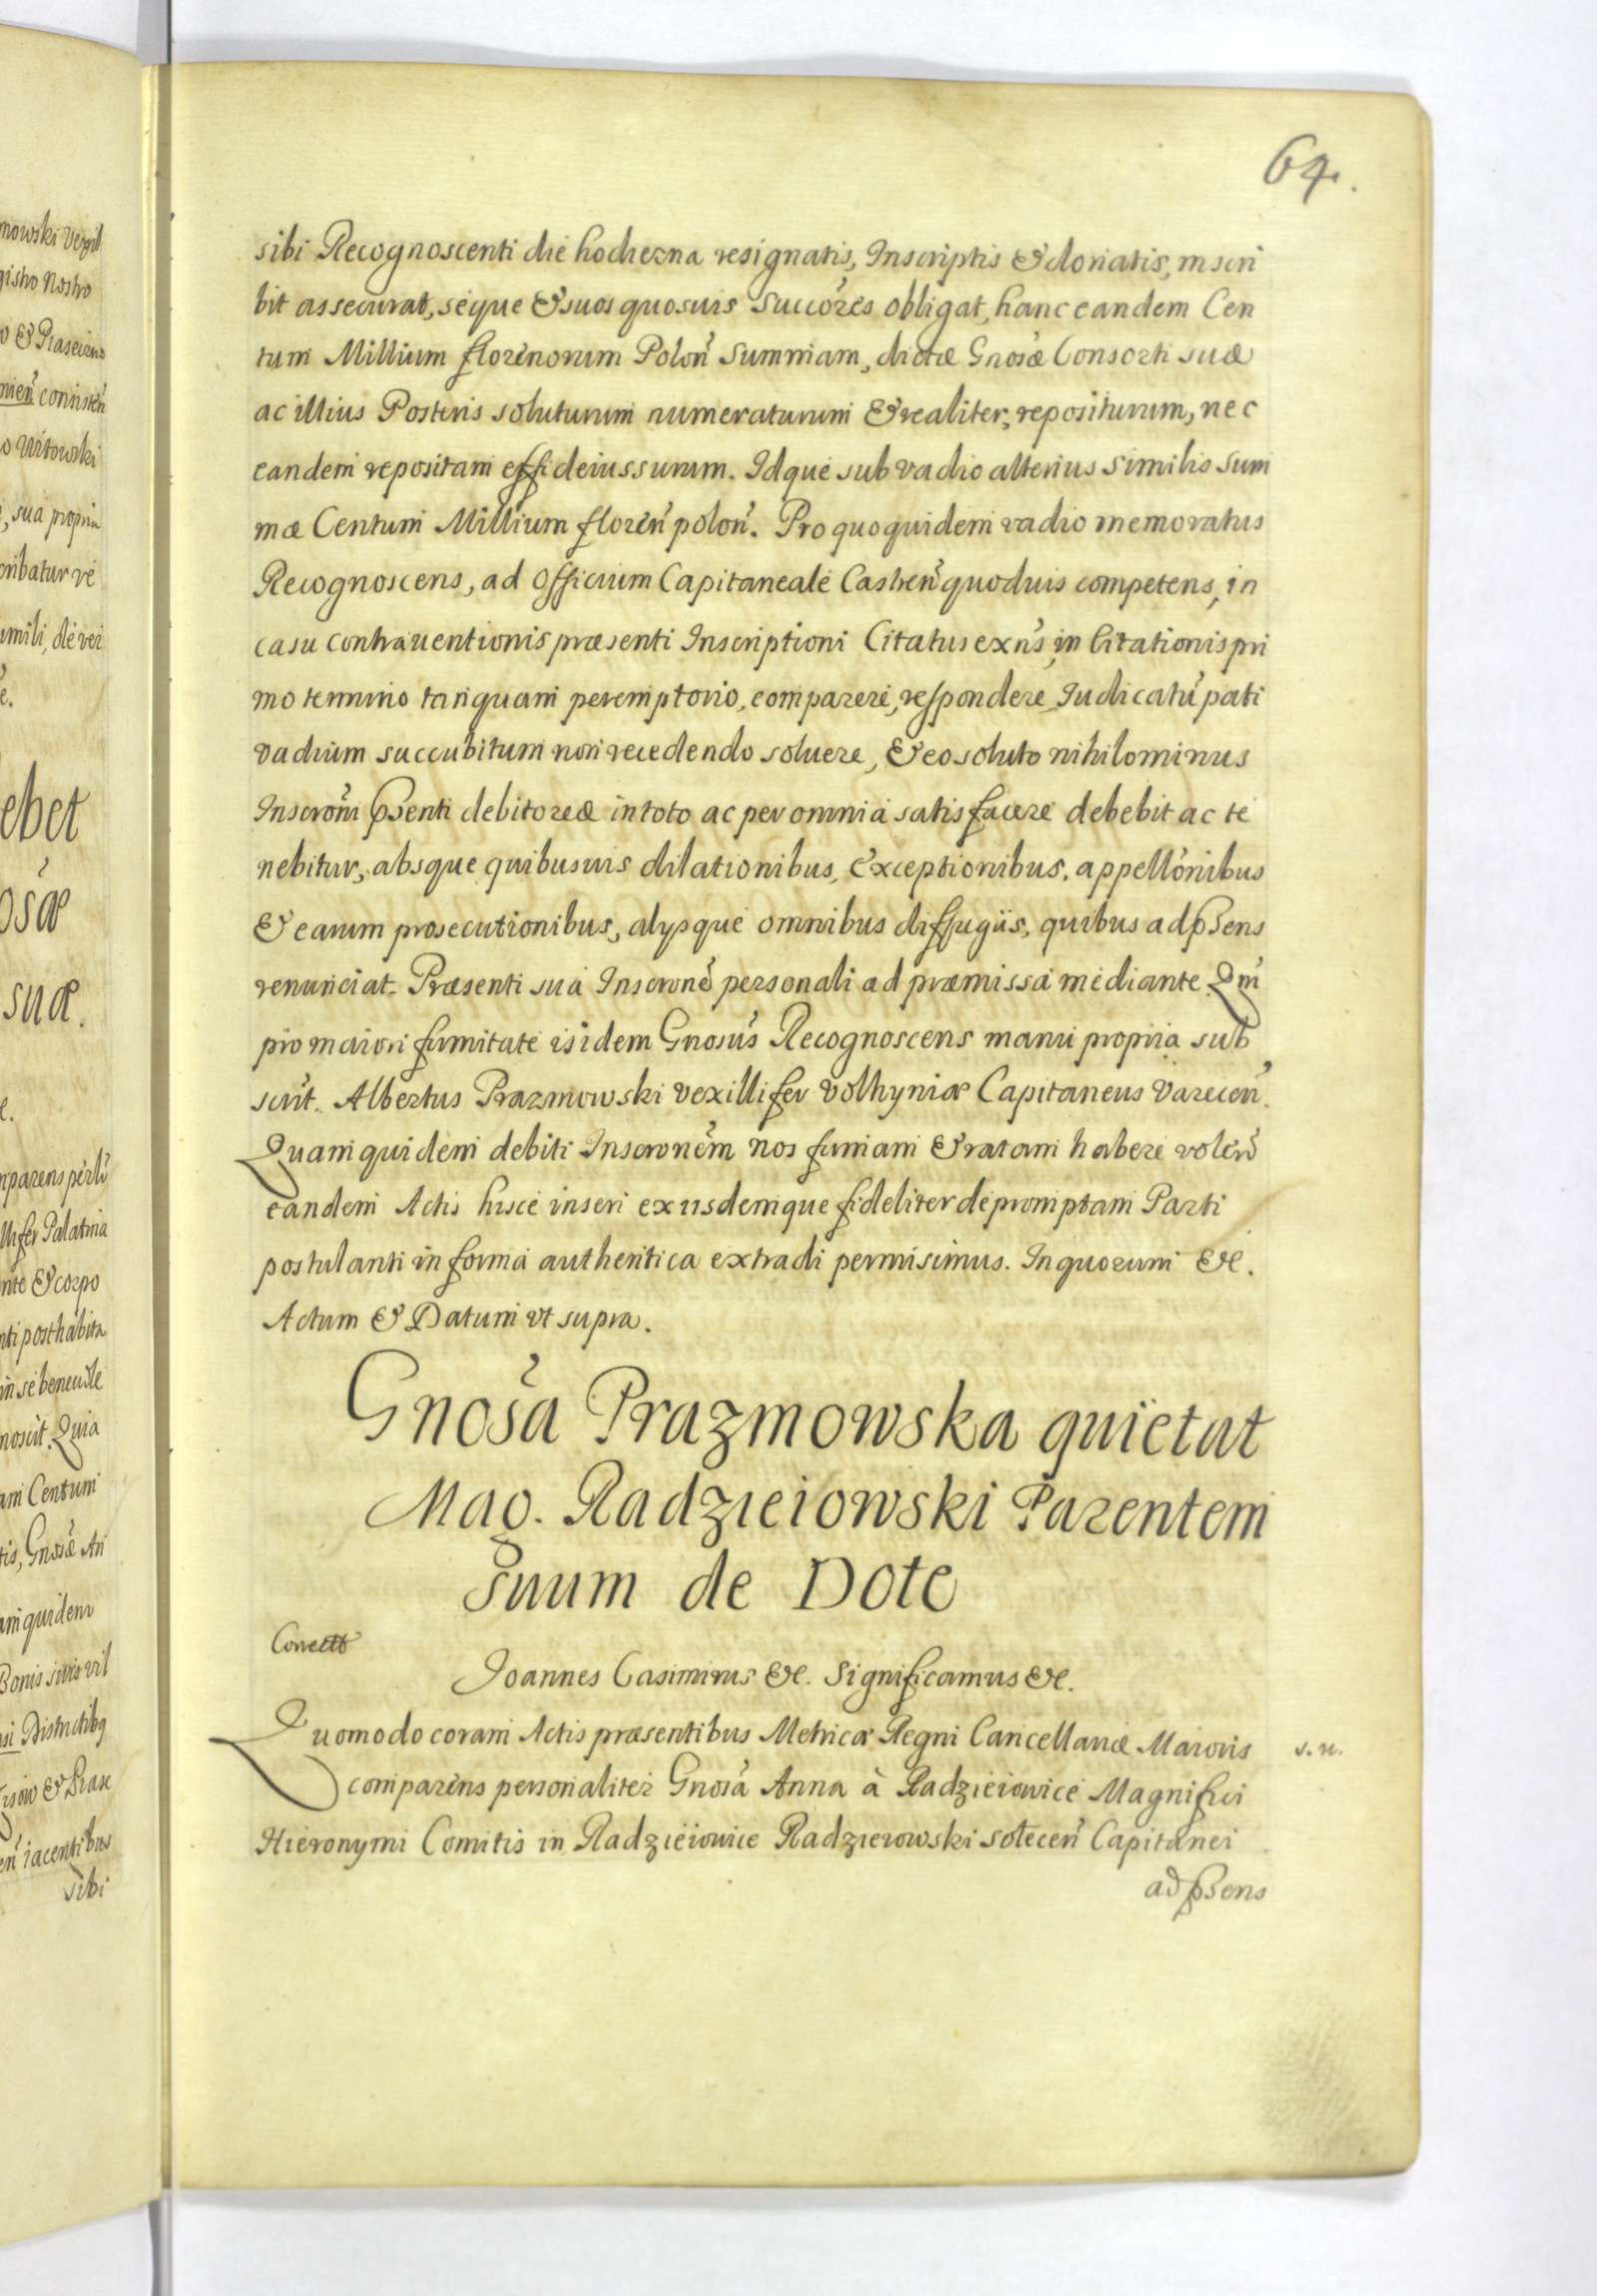 64.
sibi Recognoscenti die hodierna resignatis, Inscriptis & donatis, inscri
bit assecurat, seque & suos quosuis Succóres obligat, hanc eandem Cen
tum Millium florenorum Poloń Summam, dictæ Gnosæ Consorti suæ
ac illius Posteris soluturum numeraturum & realiter repositurum, nec
eandem repositam effideiussurum. Idque sub vadio alterius similis Sum
mæ Centum Millium floreń poloń. Pro quo quidem vadio memoratus
Recognoscens, ad Officium Capitaneale Castreń quoduis competens, in
casu contrauentionis præsenti Inscriptioni Citatus exńs, in Citationis pri
mo termino tanquam peremptorio, comparere, respondere, Iudicatú pati
vadium succubitum non recedendo soluere, & eo soluto nihilominus
Inscroni pßenti debitoreæ in toto ac per omnia satisfacere debebit ac te
nebitur, absque quibusuis dilationibus, exceptionibus, appellónibus
& earum prosecutionibus, alysque omnibus diffugiis, quibus ad pßens
renunciat. Præsenti sua Inscrone personali ad præmissa mediante. Qm̃
pro maiori firmitate isidem Gnosus Recognoscens manu propria sub
scrit. Albertus Prazmowski vexillifer Volhyniæ Capitaneus Vareceń.
Quam quidem debiti Inscronem nos firmam & ratam habere voleń
eandem Actis hisce inseri ex iisdemque fideliter depromptam Parti
postulanti in forma authentica extradi permisimus. In quorum &c.
Actum & Datum vt supra.
Gnosa Prazmowska quietat
Mag. Radzieiowski Parentem
Suum de Dote
Ioannes Casimirus &c. Significamus &c.
Quomodo coram Actis præsentibus Metricæ Regni Cancellariæ Maioris
s. n.
comparens personaliter Gnosa Anna à Radzieiowice Magnifici
Hieronymi Comitis in Radzieiowice Radzieiowski Soleceń Capitanei
ad pßens